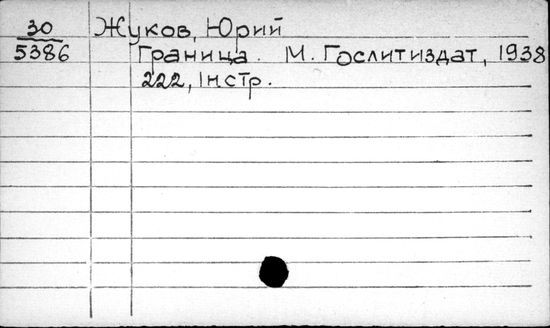 30 Жуков, Юрий
5386 Граница. М. Гослитиздат, 1938
222, Iнстр.